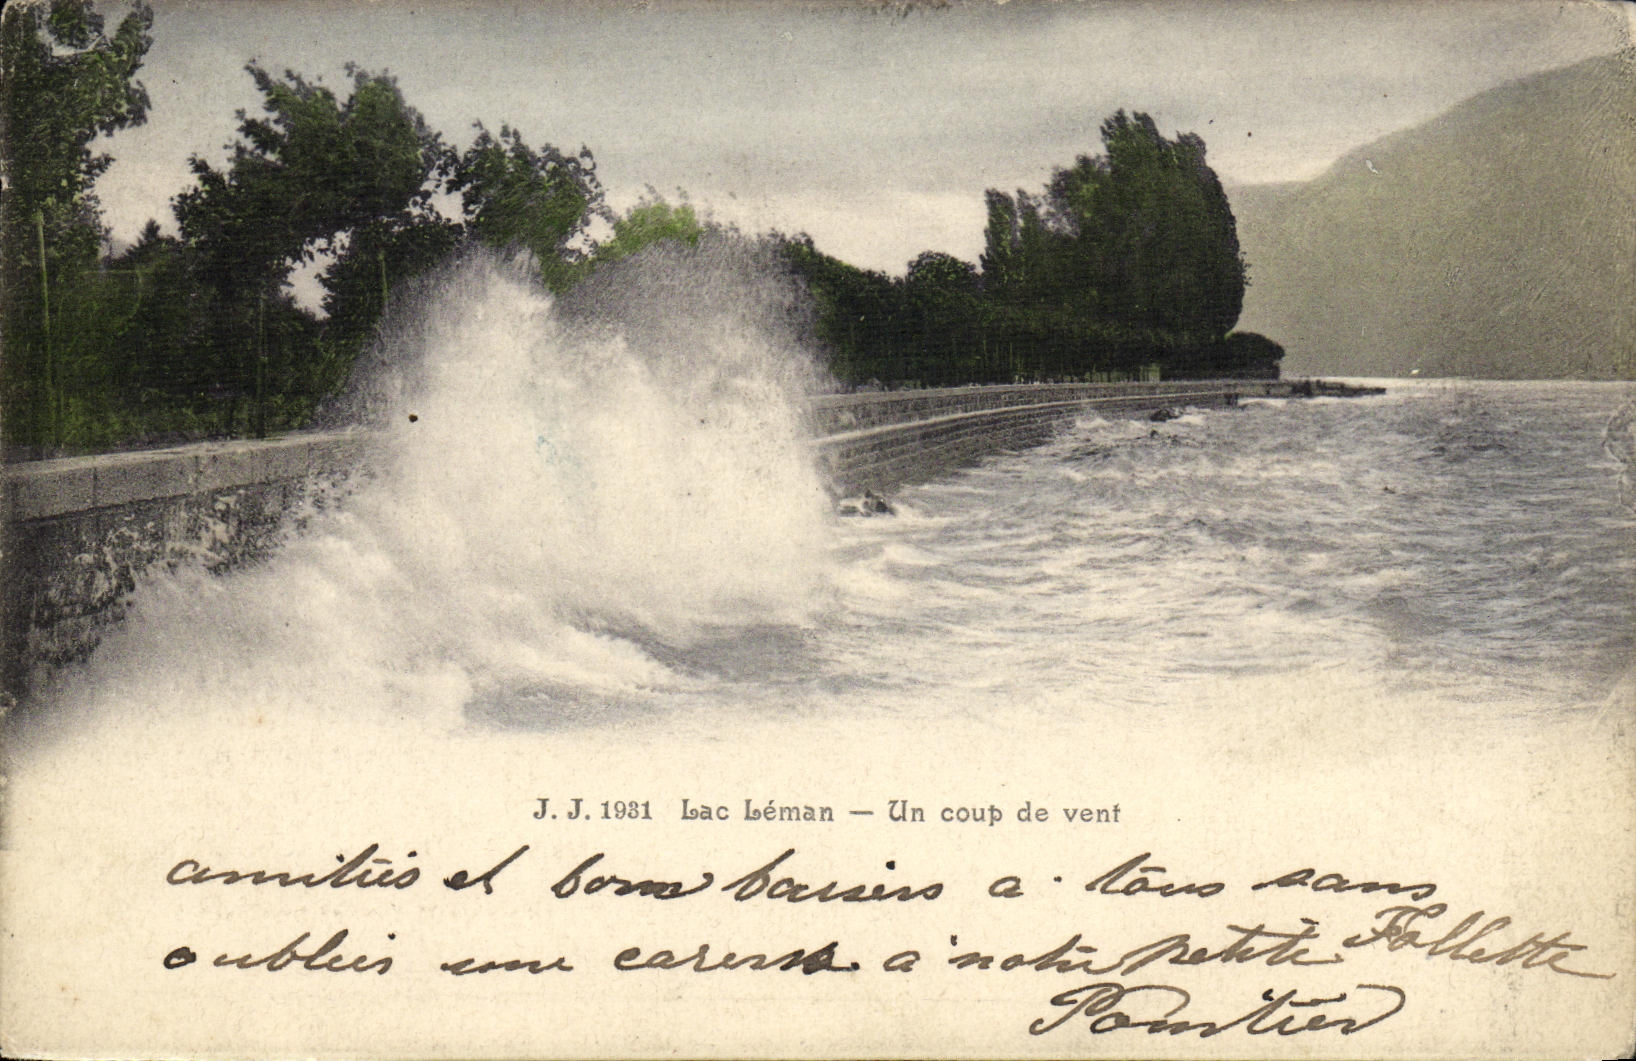 J. J. 1931 Lac Léman — Un coup de vent
amitiés et bons baisers a tous sans
oublier une caresse a notre petite Follette